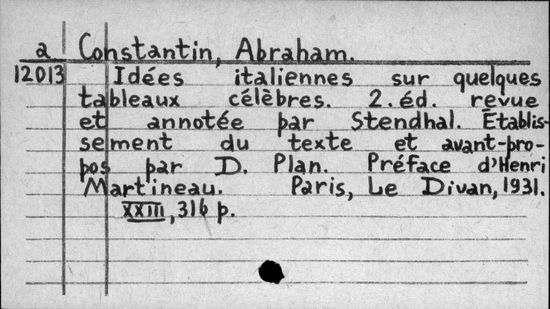 a Constantin, Abraham.
12013 Idées italiennes sur quelques
tableaux célèbres. 2.éd. revue
et annotée par Stendhal. Établis-
sement du texte et avant-pro-
pos par D. Plan. Préface d'Henri
Martineau. Paris, Le Divan, 1931.
XXIII, 316 p.